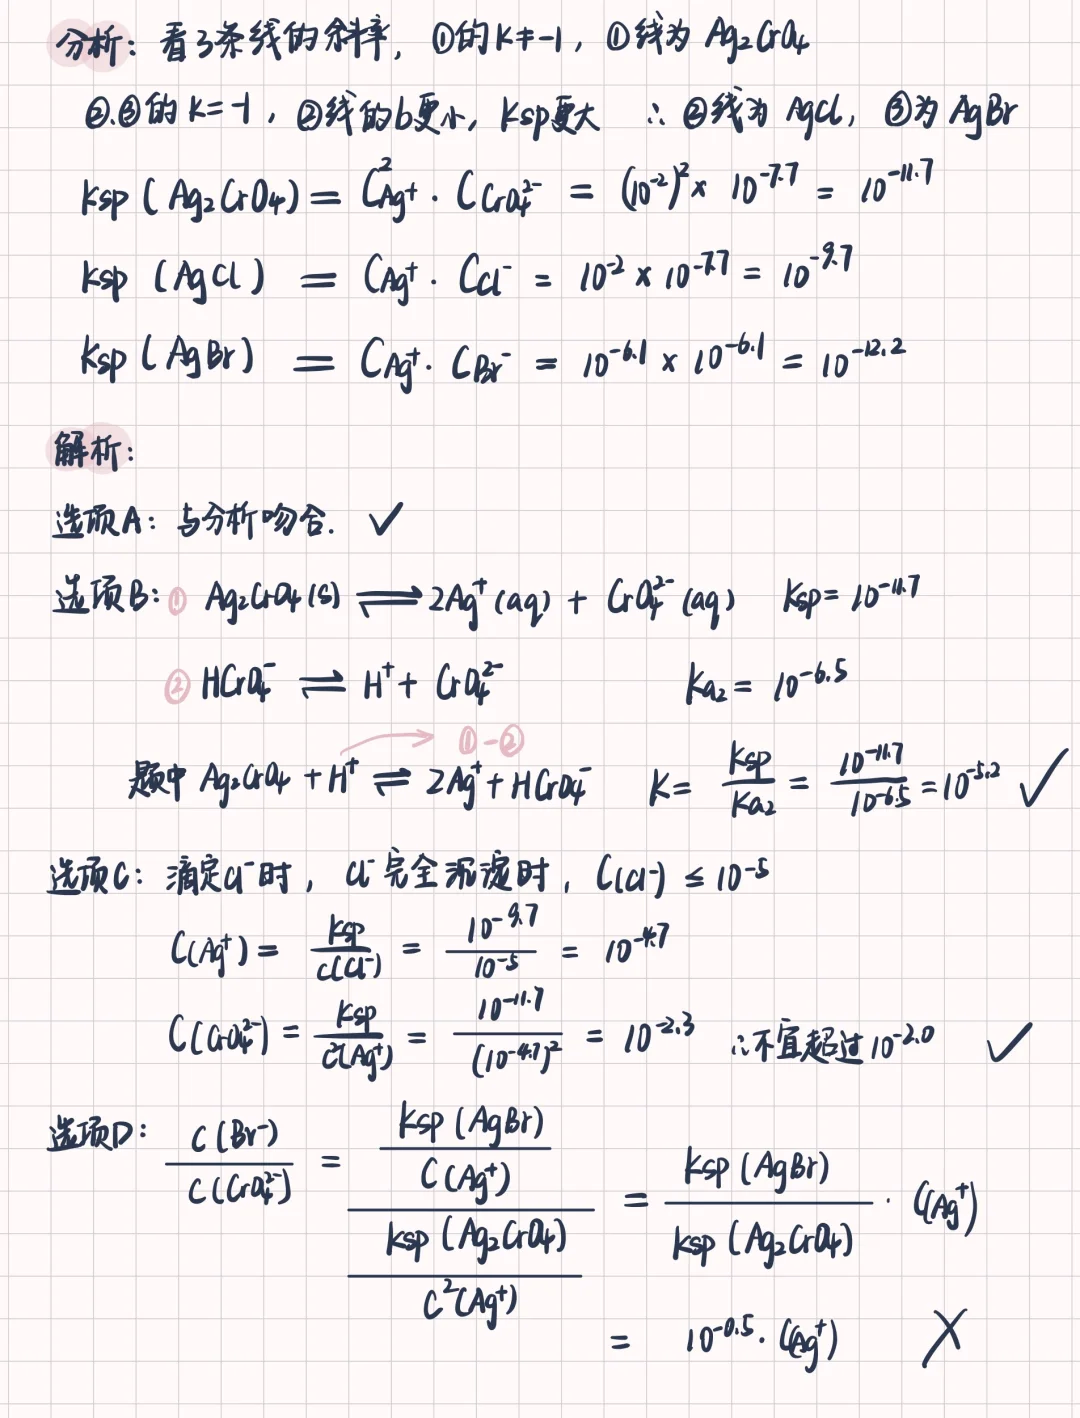 分析：看3条线的斜率，①的k≠-1，①线为Ag₂CrO₄
②.③的k=-1，②线的b更小，Ksp更大 ∴②线为AgCl，③为AgBr
Ksp（Ag₂CrO₄）= C²Ag⁺ · C CrO₄²⁻ = (10⁻²)² × 10⁻⁷·⁷ = 10⁻¹¹·⁷
Ksp（AgCl）= CAg⁺ · CCl⁻ = 10⁻² × 10⁻⁷·⁷ = 10⁻⁹·⁷
Ksp（AgBr）= CAg⁺ · CBr⁻ = 10⁻⁶·¹ × 10⁻⁶·¹ = 10⁻¹²·²
解析：
选项A：与分析吻合. ✓
选项B：① Ag₂CrO₄(s) ⇌ 2Ag⁺(aq) + CrO₄²⁻(aq) Ksp = 10⁻¹¹·⁷
② HCrO₄⁻ ⇌ H⁺ + CrO₄²⁻ Ka₂ = 10⁻⁶·⁵
→ ①-②
题中 Ag₂CrO₄ + H⁺ ⇌ 2Ag⁺ + HCrO₄⁻ K = Ksp/Ka₂ = 10⁻¹¹·⁷/10⁻⁶·⁵ = 10⁻⁵·² ✓
选项C：滴定Cl⁻时，Cl⁻完全沉淀时，C(Cl⁻) ≤ 10⁻⁵
C(Ag⁺) = Ksp/C(Cl⁻) = 10⁻⁹·⁷/10⁻⁵ = 10⁻⁴·⁷
C(CrO₄²⁻) = Ksp/C²(Ag⁺) = 10⁻¹¹·⁷/(10⁻⁴·⁷)² = 10⁻²·³ ∴不宜超过10⁻²·⁰ ✓
选项D：C(Br⁻)/C(CrO₄²⁻) = (Ksp(AgBr)/C(Ag⁺))/(Ksp(Ag₂CrO₄)/C²(Ag⁺)) = Ksp(AgBr)/Ksp(Ag₂CrO₄) · C(Ag⁺)
= 10⁻⁰·⁵ · C(Ag⁺) ✗